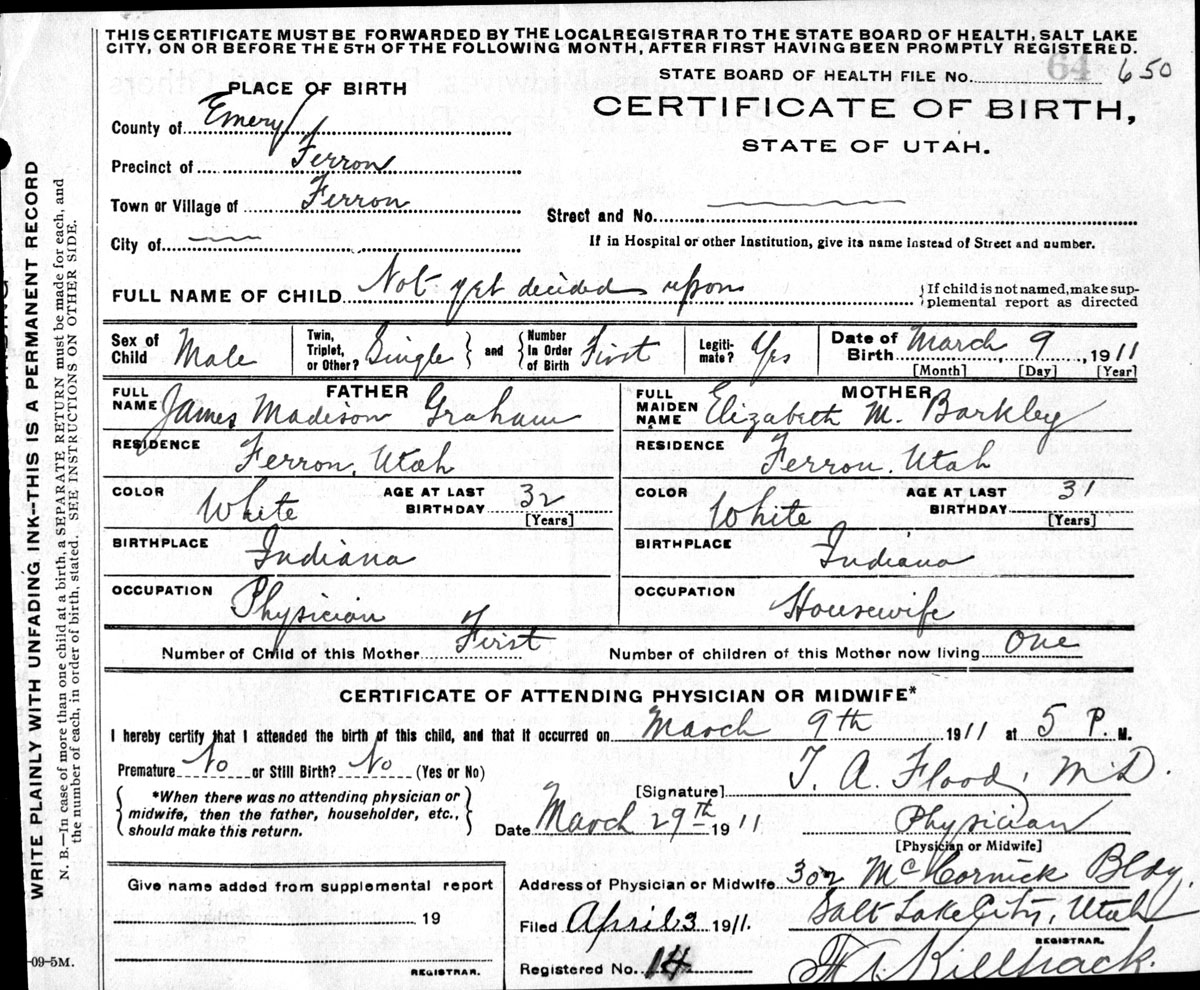 THIS CERTIFICATE MUST BE FORWARDED BY THE LOCALREGISTRAR TO THE STATE BOARD OF HEALTH, SALT LAKE
CITY, ON OR BEFORE THE 5TH OF THE FOLLOWING MONTH, AFTER FIRST HAVING BEEN PROMPTLY REGISTERED.
STATE BOARD OF HEALTH FILE No. 64 650
PLACE OF BIRTH
CERTIFICATE OF BIRTH,
STATE OF UTAH.
County of Emery
Precinct of Ferron
Town or Village of Ferron
Street and No.
City of
If in Hospital or other Institution, give its name instead of Street and number.
FULL NAME OF CHILD Not yet decided upon
If child is not named, make sup-
plemental report as directed
Sex of Child Male
Twin, Triplet, or Other? Single and Number In Order of Birth First
Legiti-mate? Yes
Date of Birth March 9, 1911
[Month] [Day] [Year]
FATHER
FULL NAME James Madison Graham
RESIDENCE Ferron, Utah
COLOR White AGE AT LAST BIRTHDAY 32 [Years]
BIRTHPLACE Indiana
OCCUPATION Physician
MOTHER
FULL MAIDEN NAME Elizabeth M. Barkley
RESIDENCE Ferron, Utah
COLOR White AGE AT LAST BIRTHDAY 31 [Years]
BIRTHPLACE Indiana
OCCUPATION Housewife
Number of Child of this Mother First Number of children of this Mother now living One
CERTIFICATE OF ATTENDING PHYSICIAN OR MIDWIFE*
I hereby certify that I attended the birth of this child, and that it occurred on March 9th 1911 at 5 P. M.
Premature No or Still Birth? No (Yes or No)
[Signature] T. A. Flood, M.D.
*When there was no attending physician or
midwife, then the father, householder, etc.,
should make this return.
Date March 29th 1911
Physician
[Physician or Midwife]
Give name added from supplemental report
19
REGISTRAR.
Address of Physician or Midwife 302 McCornick Bldg,
Salt Lake City, Utah
Filed April 3 1911.
REGISTRAR.
Registered No. 14
Killpack.
WRITE PLAINLY WITH UNFADING INK--THIS IS A PERMANENT RECORD
N. B.—In case of more than one child at a birth, a SEPARATE RETURN must be made for each, and
the number of each, in order of birth, stated. SEE INSTRUCTIONS ON OTHER SIDE.
-09-5M.